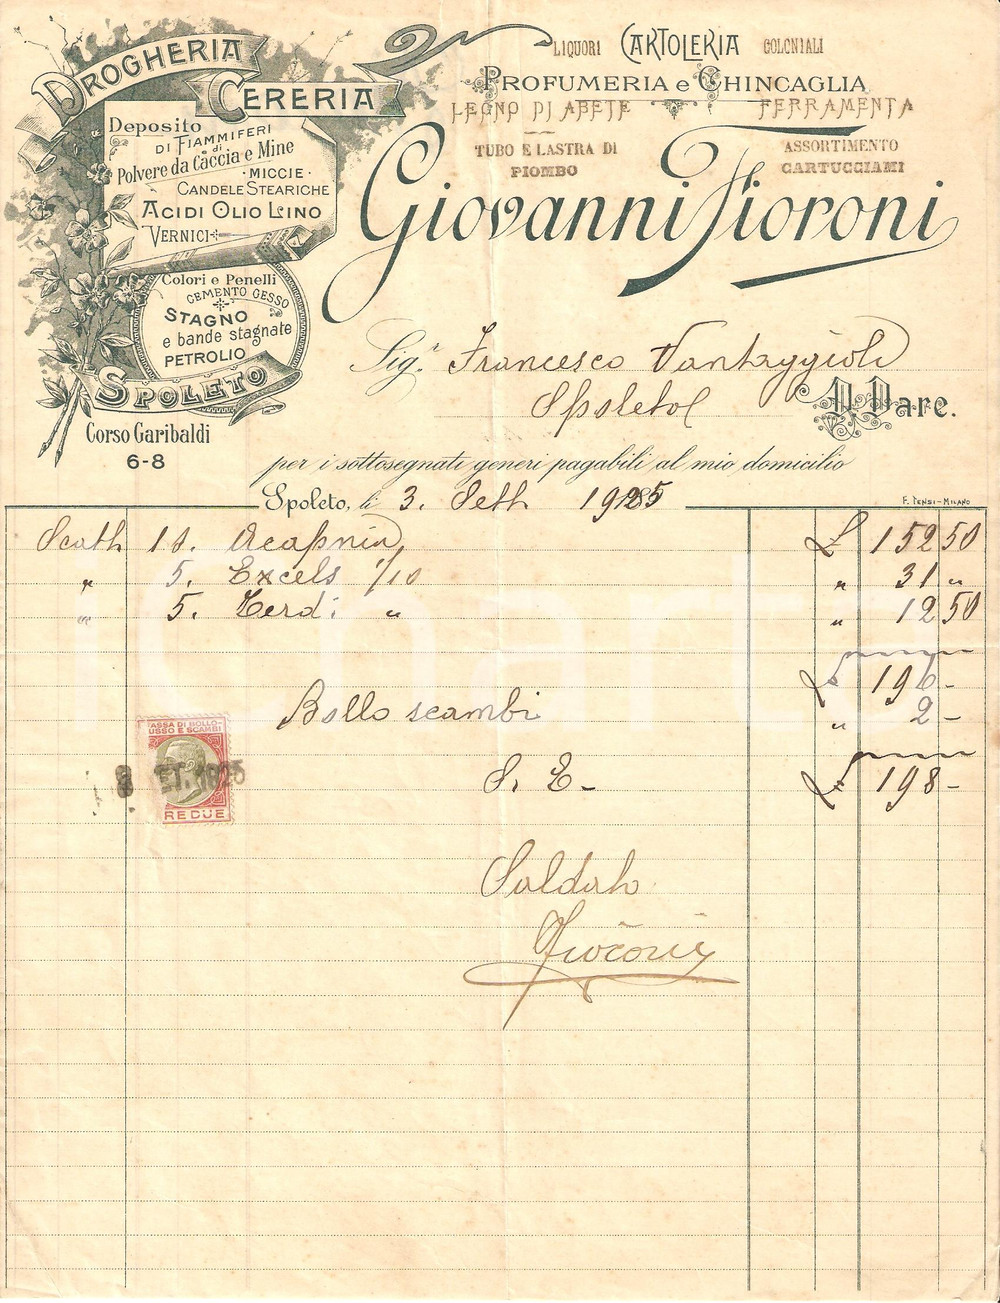 DROGHERIA
CERERIA
Deposito
DI FIAMMIFERI
di
Polvere da Caccia e Mine
·MICCIE·
CANDELE STEARICHE
ACIDI OLIO LINO
VERNICI
Colori e Penelli
CEMENTO GESSO
STAGNO
e bande stagnate
PETROLIO
SPOLETO
Corso Garibaldi
6-8
LIQUORI CARTOLERIA COLONIALI
PROFUMERIA e CHINCAGLIA
LEGNO DI ABETE FERRAMENTA
TUBO E LASTRA DI PIOMBO
ASSORTIMENTO CARTUCCIAMI
Giovanni Fioroni
Sig.r Francesco Vantaggioli
Spoleto
D. Dare.
per i sottosegnati generi pagabili al mio domicilio
Spoleto, li 3. Sett. 1925
F. TENSI-MILANO
Scatt 10. Acapnia £ 152 50
" 5. Excels 1/10 " 31 "
" 5. Verdi " " 12 50
£ 196 -
Bollo scambi " 2 -
S. E. £ 198 -
TASSA DI BOLLO
LUSSO E SCAMBI
SET. 1925
RE DUE
Saldato
Fioroni
iCharta